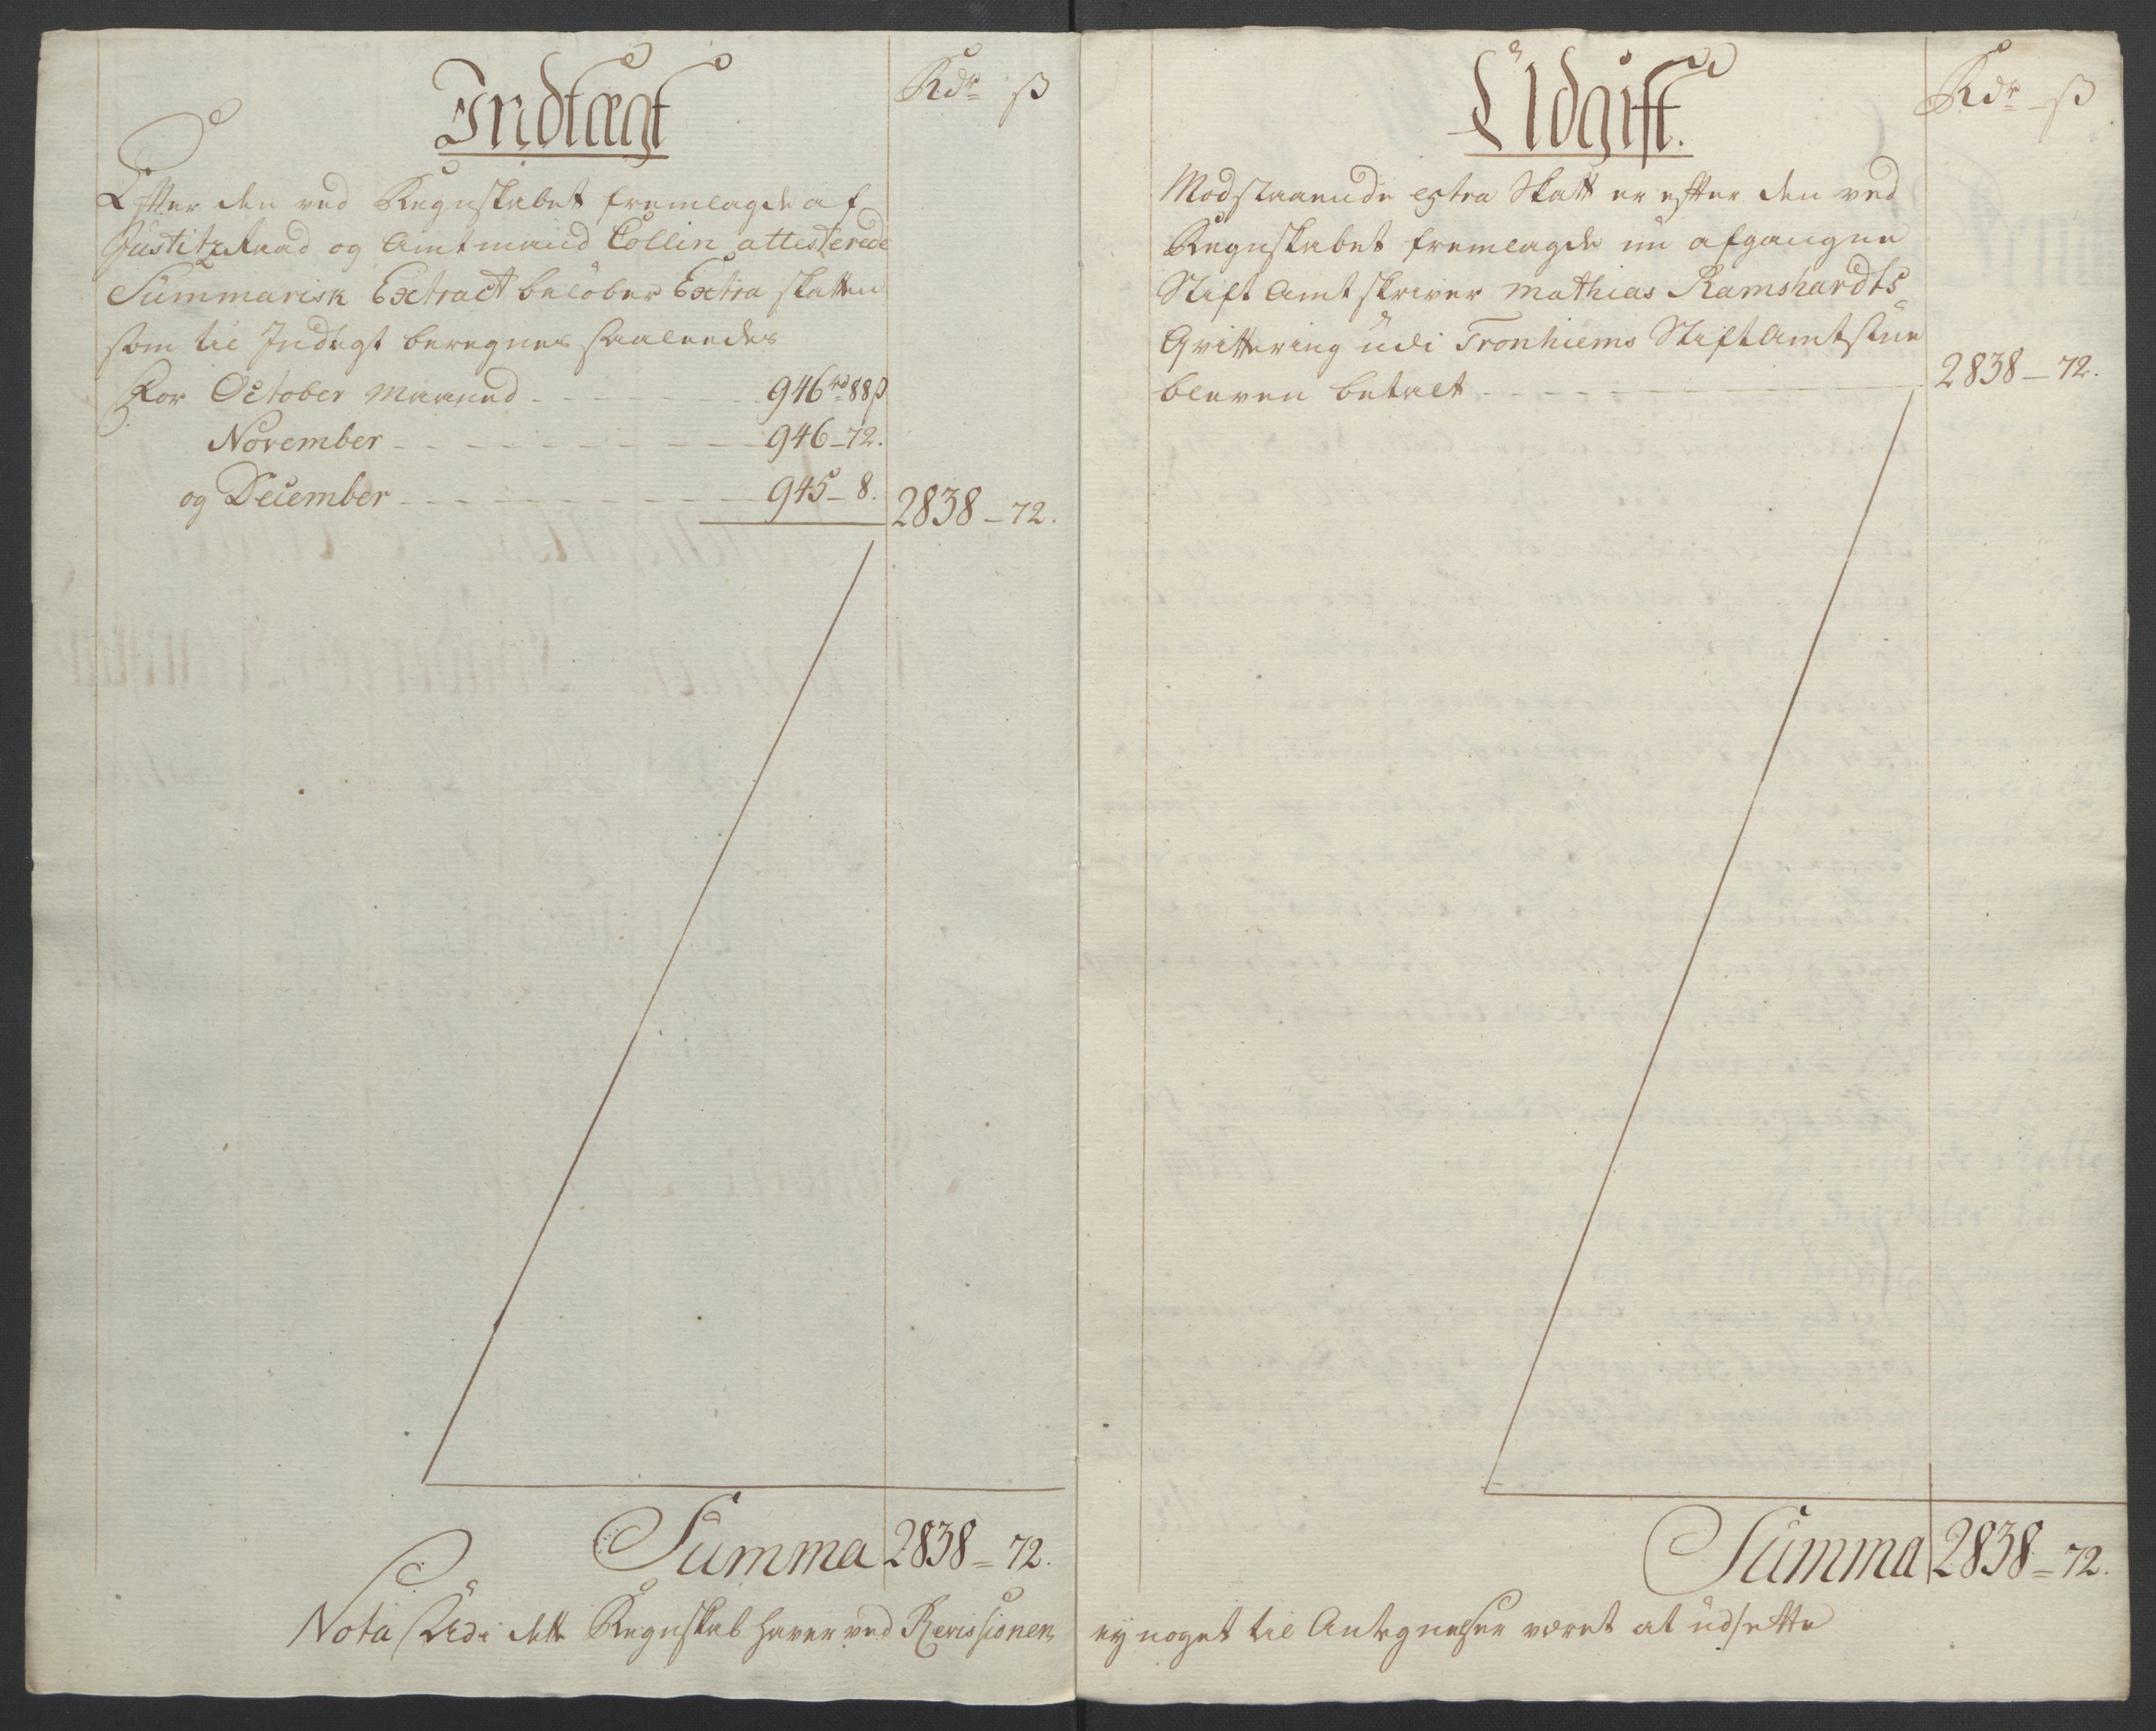 Indtægt
Rdr ß
Efter den ved Regnskabet fremlagde af
Justitz Raad og Amtmand Collin attesterede
Summarisk Extract beløber Extra skatten
som til Indtægt beregnes saaleedes
For October Maaned - 946 rd 88 ß
November - 946 - 72.
og December - 945 - 8. 2838 - 72.
Summa 2838 = 72.
Nota Udi dette Regnskab haver ved Revissionen
Udgift.
Rdr - ß
Modstaaende extra Skatt er efter den ved
Regnskabet fremlagde nu afgangne
Stift Amt skriver Mathias Ramshardts
Qvittering udi Tronhiems Stift Amtstue
bleven betalt - 2838 - 72.
Summa 2838 = 72.
ey noget til Antegnelser været at udsette